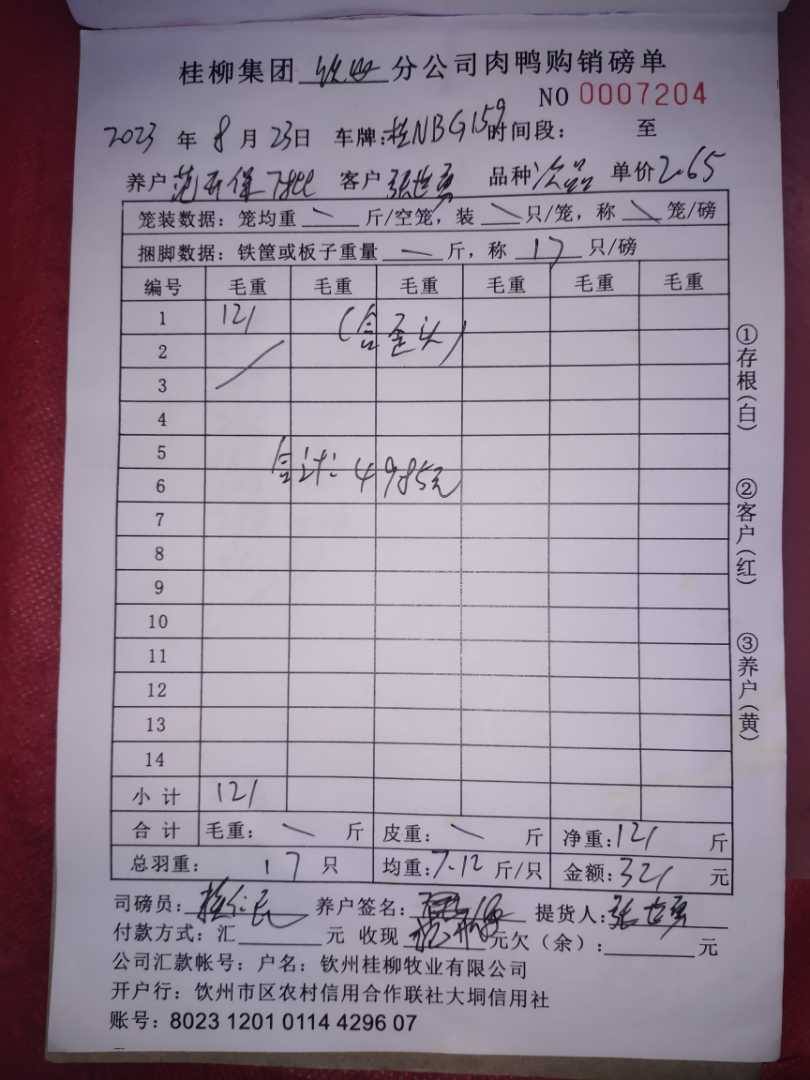 桂柳集团 钦州 分公司肉鸭购销磅单
NO 0007204
2023 年 8 月 23日 车牌:桂NBG159 时间段: 至
养户 客户 张世勇 品种 次品 单价 2.65
笼装数据: 笼均重 斤/空笼, 装 只/笼, 称 笼/磅
捆脚数据: 铁筐或板子重量 斤, 称 17 只/磅
编号 毛重 毛重 毛重 毛重 毛重 毛重
1 121 (含歪头)
2
3
4
5
合计: 4985元
6
7
8
9
10
11
12
13
14
小计 121
合计 毛重: 斤 皮重: 斤 净重: 121 斤
总羽重: 17 只 均重: 7.12 斤/只 金额: 321 元
司磅员: 养户签名: 提货人: 张世勇
付款方式: 汇 元 收现 元欠(余): 元
公司汇款帐号: 户名: 钦州桂柳牧业有限公司
开户行: 饮州市区农村信用合作联社大垌信用社
账号: 8023 1201 0114 4296 07
①存根(白)
②客户(红)
③养户(黄)